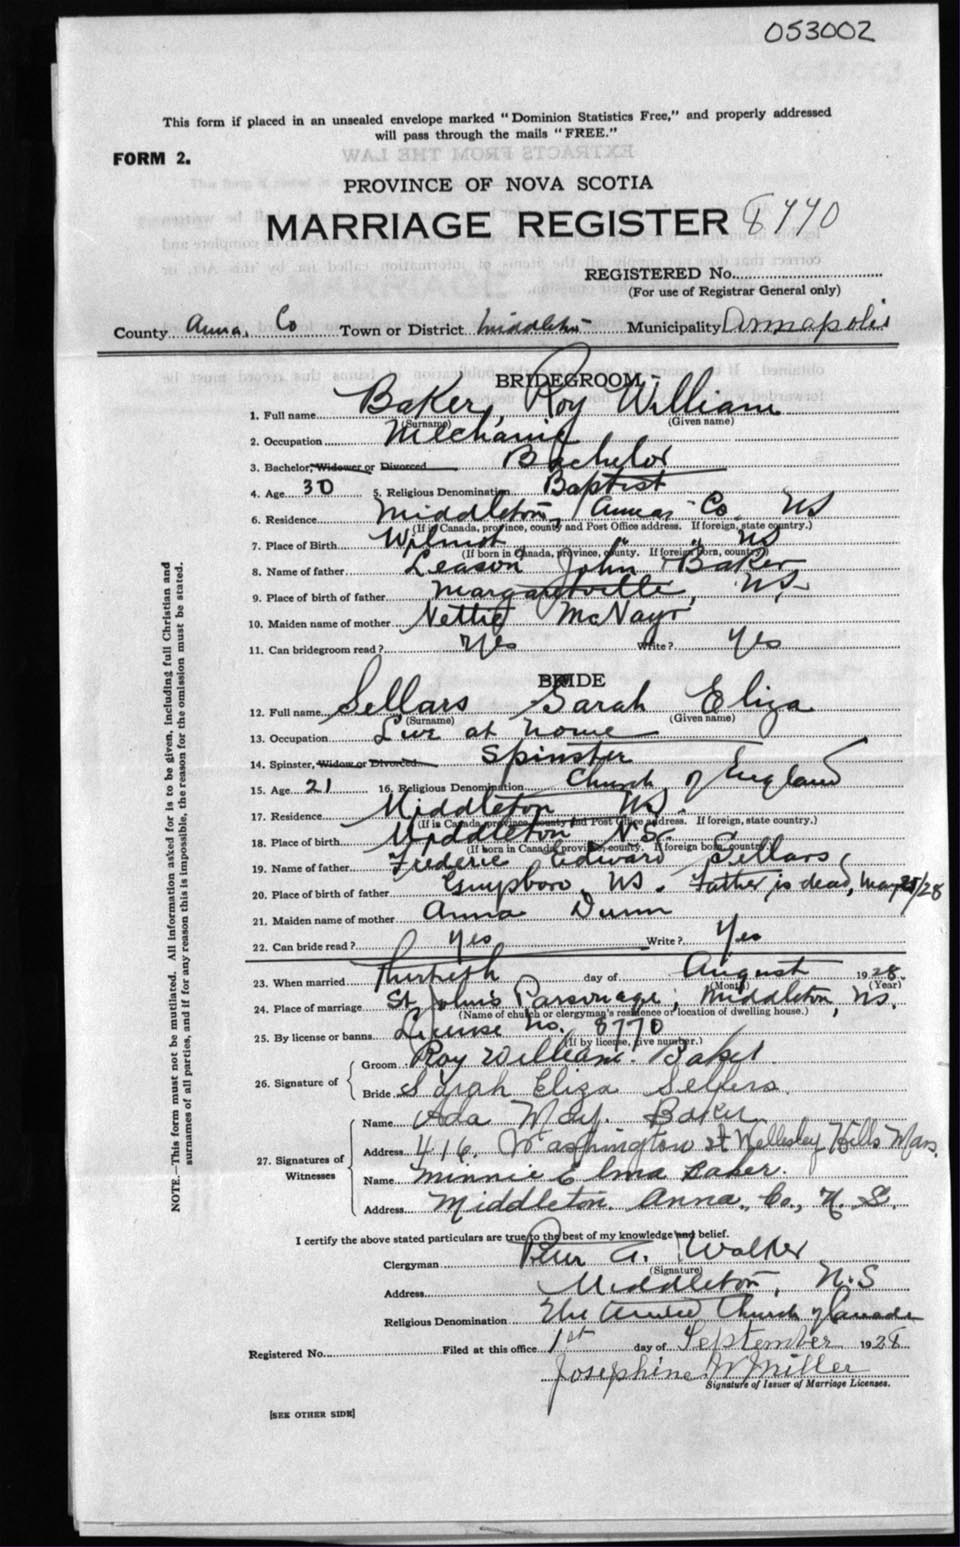 053002
This form if placed in an unsealed envelope marked "Dominion Statistics Free," and properly addressed
will pass through the mails "FREE."
FORM 2.
PROVINCE OF NOVA SCOTIA
MARRIAGE REGISTER 8770
REGISTERED No.
(For use of Registrar General only)
County Anna. Co Town or District Middleton Municipality Annapolis
BRIDEGROOM
1. Full name Baker, Roy William
(Surname) (Given name)
2. Occupation Mechanic
3. Bachelor, Widower or Divorced Bachelor
4. Age 30 5. Religious Denomination Baptist
6. Residence Middleton, Annas Co. NS
(If in Canada, province, county and Post Office address. If foreign, state country.)
7. Place of Birth Wilmot " " NS
(If born in Canada, province, county. If foreign born, country)
8. Name of father Leason John Baker
9. Place of birth of father Margaretville, NS
10. Maiden name of mother Nettie McNayr
11. Can bridegroom read? Yes Write? Yes
BRIDE
12. Full name Sellars Sarah Eliza
(Surname) (Given name)
13. Occupation Live at home
14. Spinster, Widow or Divorced Spinster
15. Age 21 16. Religious Denomination Church of England
17. Residence Middleton NS.
(If in Canada, province, county and Post Office address. If foreign, state country.)
18. Place of birth Middleton N.S.
(If born in Canada, province, county. If foreign born, country.)
19. Name of father Frederic Edward Sellars
20. Place of birth of father Guysboro, NS. Father is dead, May 25/28
21. Maiden name of mother Anna Dunn
22. Can bride read? Yes Write? Yes
23. When married Thirtieth day of August 1928
(Month) (Year)
24. Place of marriage St John's Parsonage, Middleton, NS.
(Name of church or clergyman's residence or location of dwelling house.)
25. By license or banns License No. 8770
(If by license, give number.)
26. Signature of Groom Roy William Baker
Bride Sarah Eliza Sellers
27. Signatures of Witnesses Name Ada May Baker
Address 416, Washington St Wellesley Hills Mass.
Name Minnie Elma Baker.
Address Middleton. Anna. Co., N.S.
I certify the above stated particulars are true to the best of my knowledge and belief.
Clergyman Peter A. Walker
(Signature)
Address Middleton, N.S
Religious Denomination The United Church of Canada
Registered No. Filed at this office 1st day of September 1928
Josephine W Miller
Signature of Issuer of Marriage Licenses.
[SEE OTHER SIDE]
NOTE.—This form must not be mutilated. All information asked for is to be given, including full Christian and
surnames of all parties, and if for any reason this is impossible, the reason for the omission must be stated.